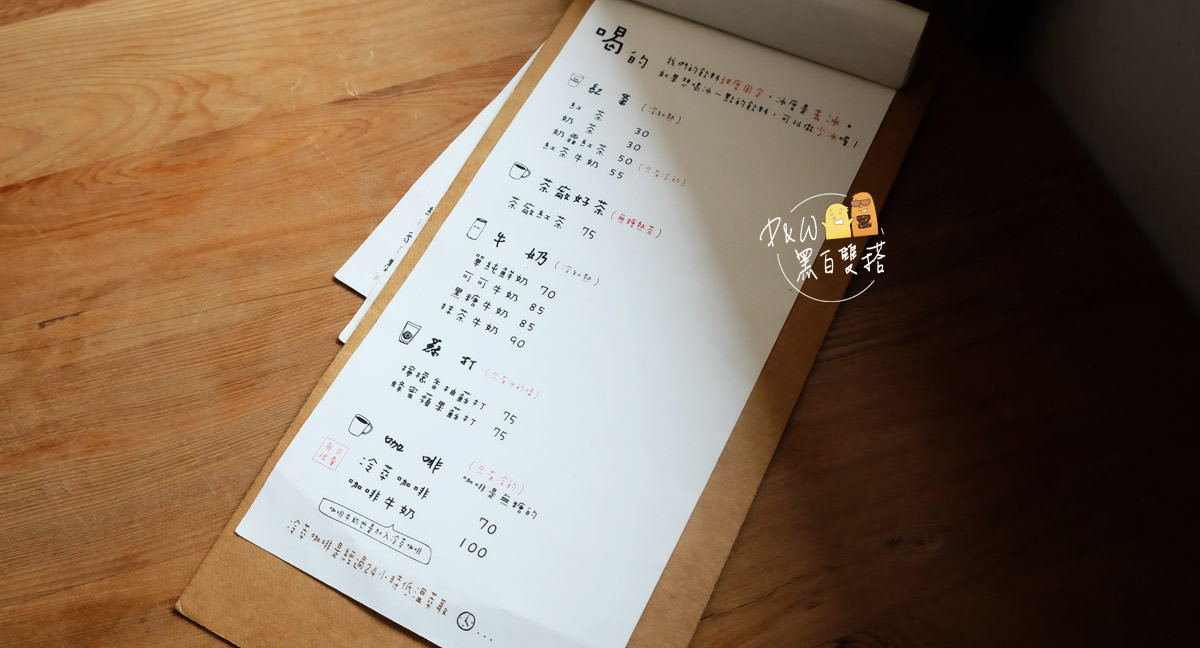 喝的
我們的飲料甜度固定。冰度是去冰。
如果想喝冰一點的飲料,可以做少冰喔!
紅茶(冷和熱)
紅茶 30
奶茶 30
奶霜紅茶 50(只有冷的)
紅茶牛奶 55
茶廠好茶(無糖熱茶)
茶廠紅茶 75
牛奶(冷和熱)
單純鮮奶 70
可可牛奶 85
黑糖牛奶 85
抹茶牛奶 90
蘇打(只有冰的喔)
檸檬香柚蘇打 75
蜂蜜蘋果蘇打 75
咖啡(只有冷的)
咖啡是無糖的
每日
限量
冷萃咖啡 70
咖啡牛奶 100
咖啡牛奶也是加入冷萃咖啡
冷萃咖啡是經過24小時低溫萃取
P&W
黑白雙搭